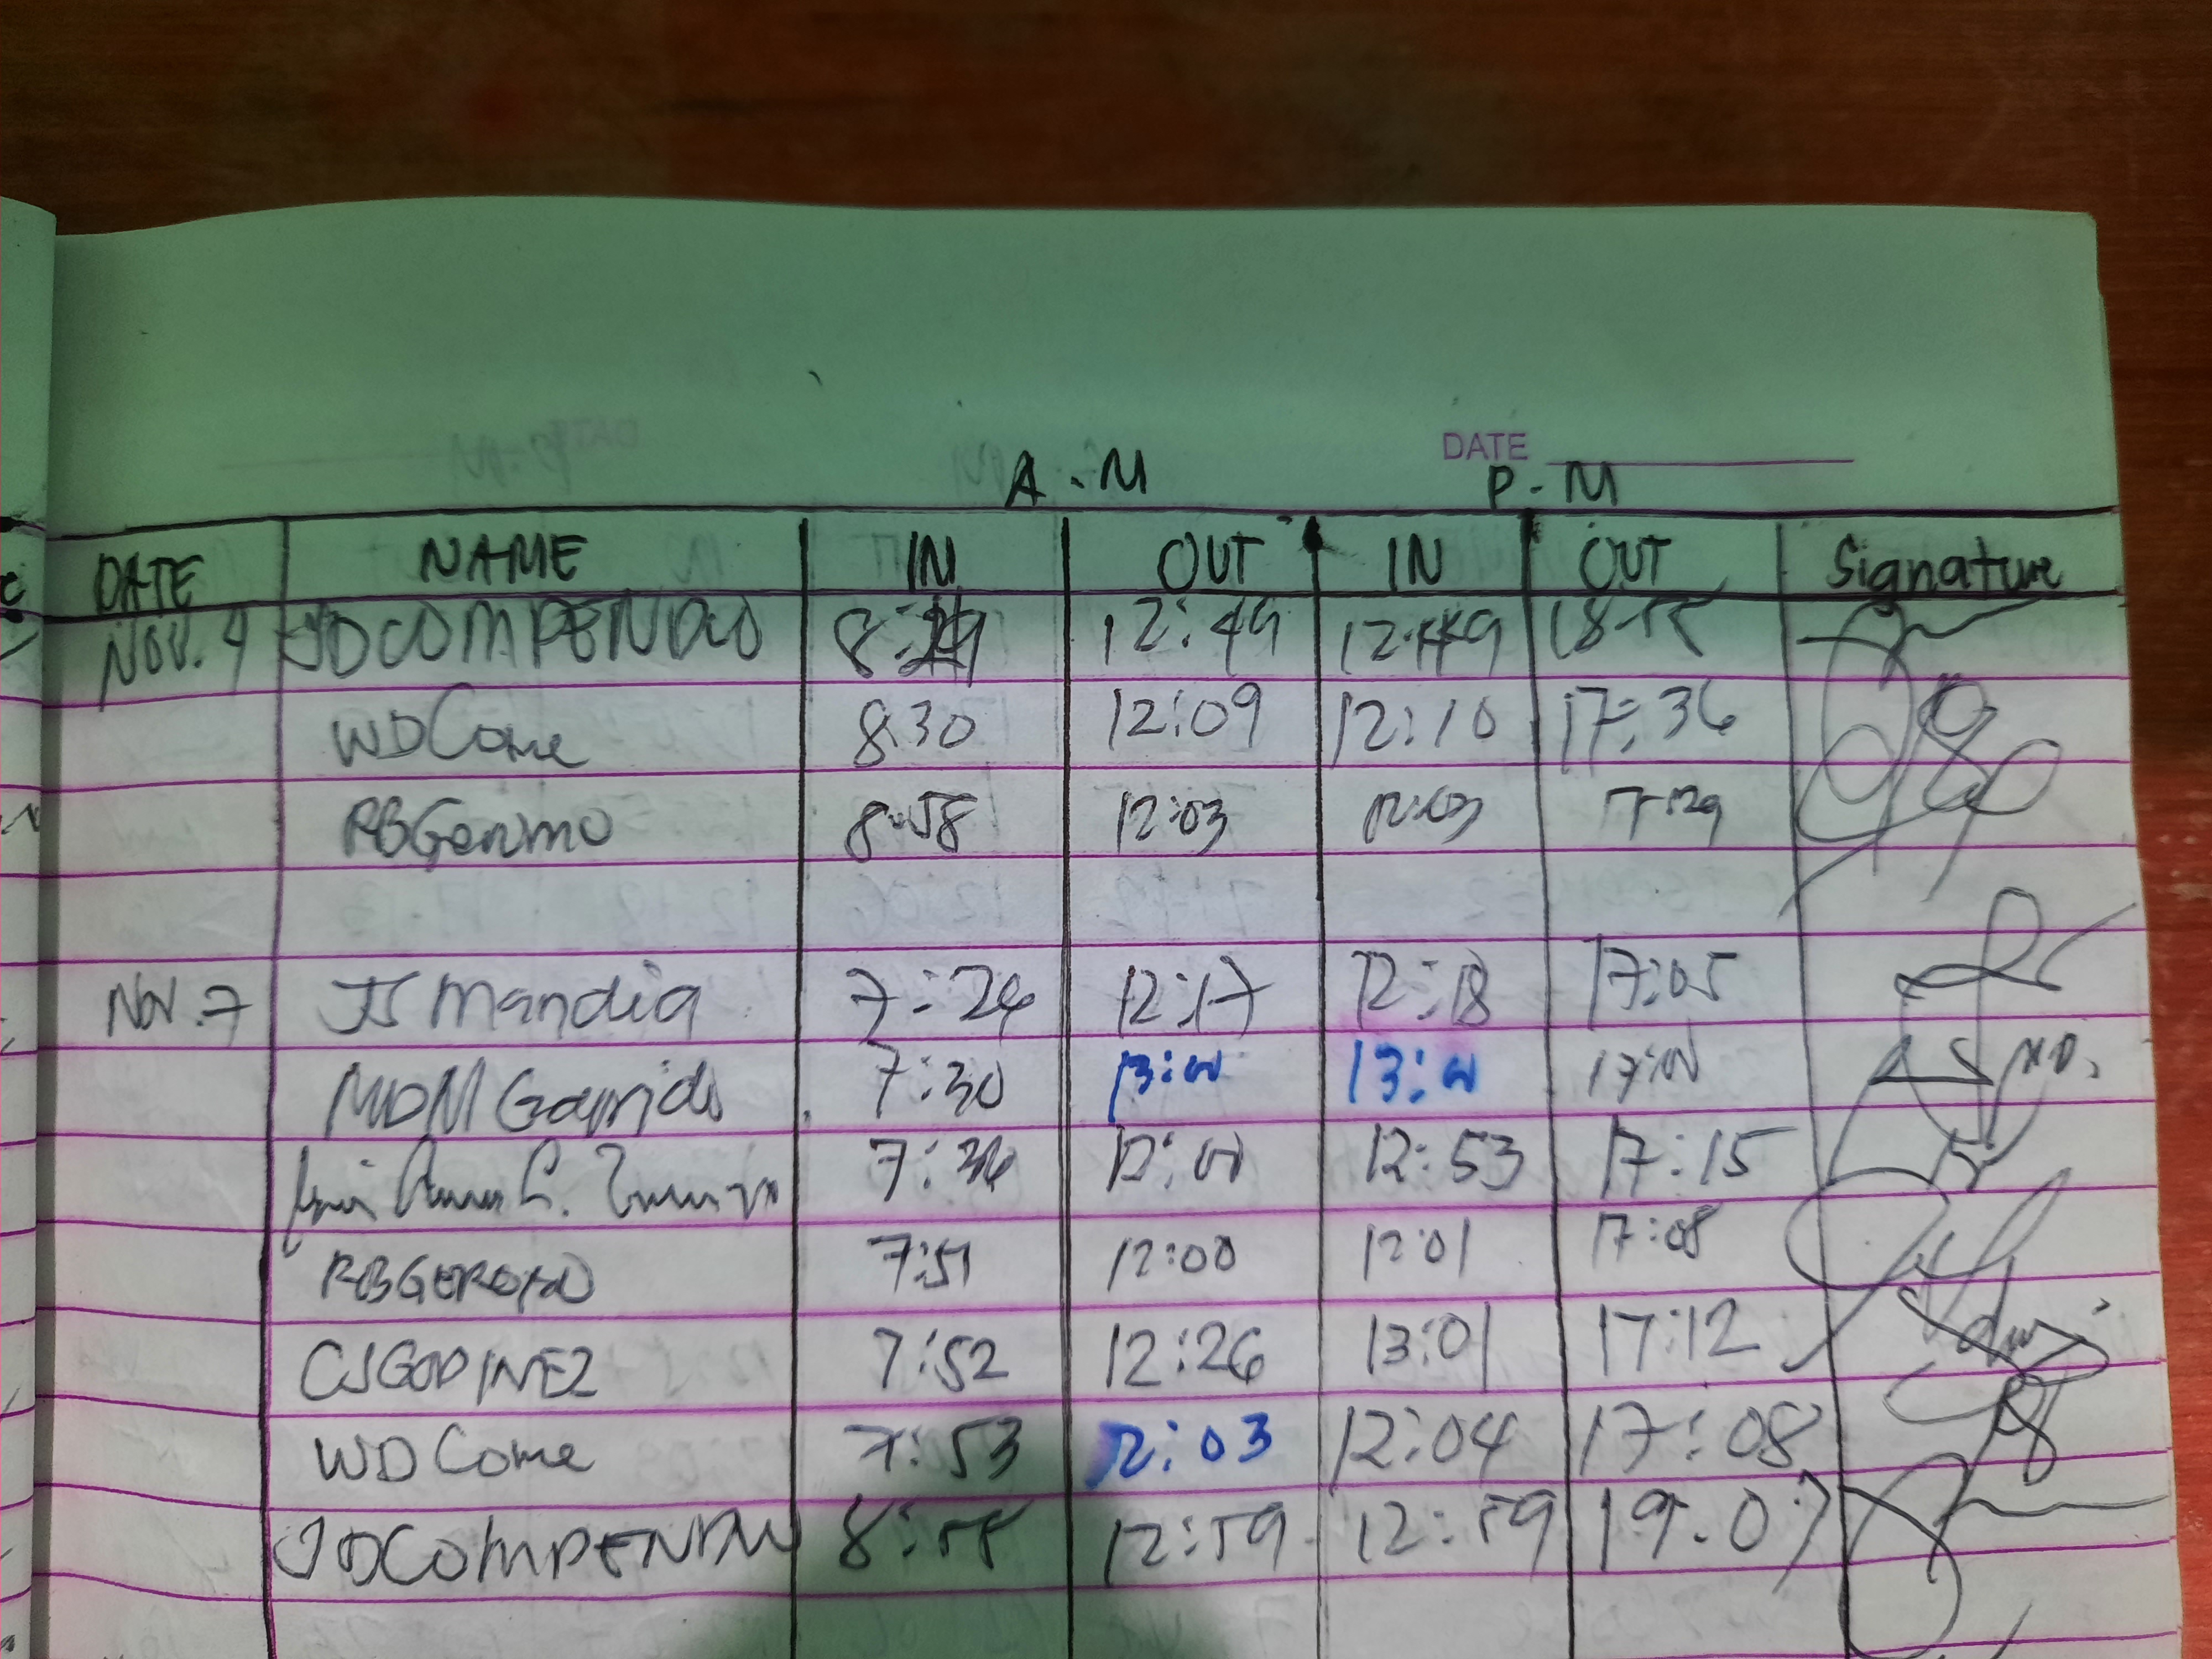 DATE
A.M P.M
DATE NAME IN OUT IN OUT Signature
NOV. 4 JDCOMPENDIO 12:49 12:49
WDCome 8:30 12:09 12:10 17:36
8:58 12:03 12:03 17:29
Nov. 7 JS Mandia 7:24 12:17 12:18 17:05
MDM Garrido 7:30 13:00 13:00 17:00
7:36 12:00 12:53 17:15
7:51 12:00 12:01 17:08
CJGODINEZ 7:52 12:26 13:01 17:12
WD Come 7:53 12:03 12:04 17:08
JDCOMPENDIO 8:55 12:59 12:59 19:07